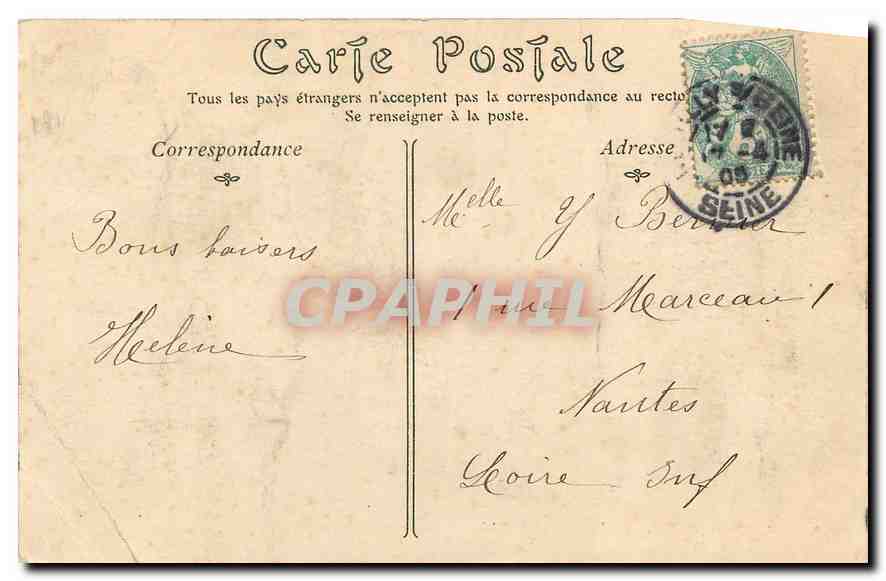 Carte Postale
Tous les pays étrangers n'acceptent pas la correspondance au recto
Se renseigner à la poste.
Correspondance
Adresse
Bons baisers
Helène
Melle Y
1 rue Marceau 1
Nantes
Loire Inf
CPAPHIL
SEINE
05
SEINE